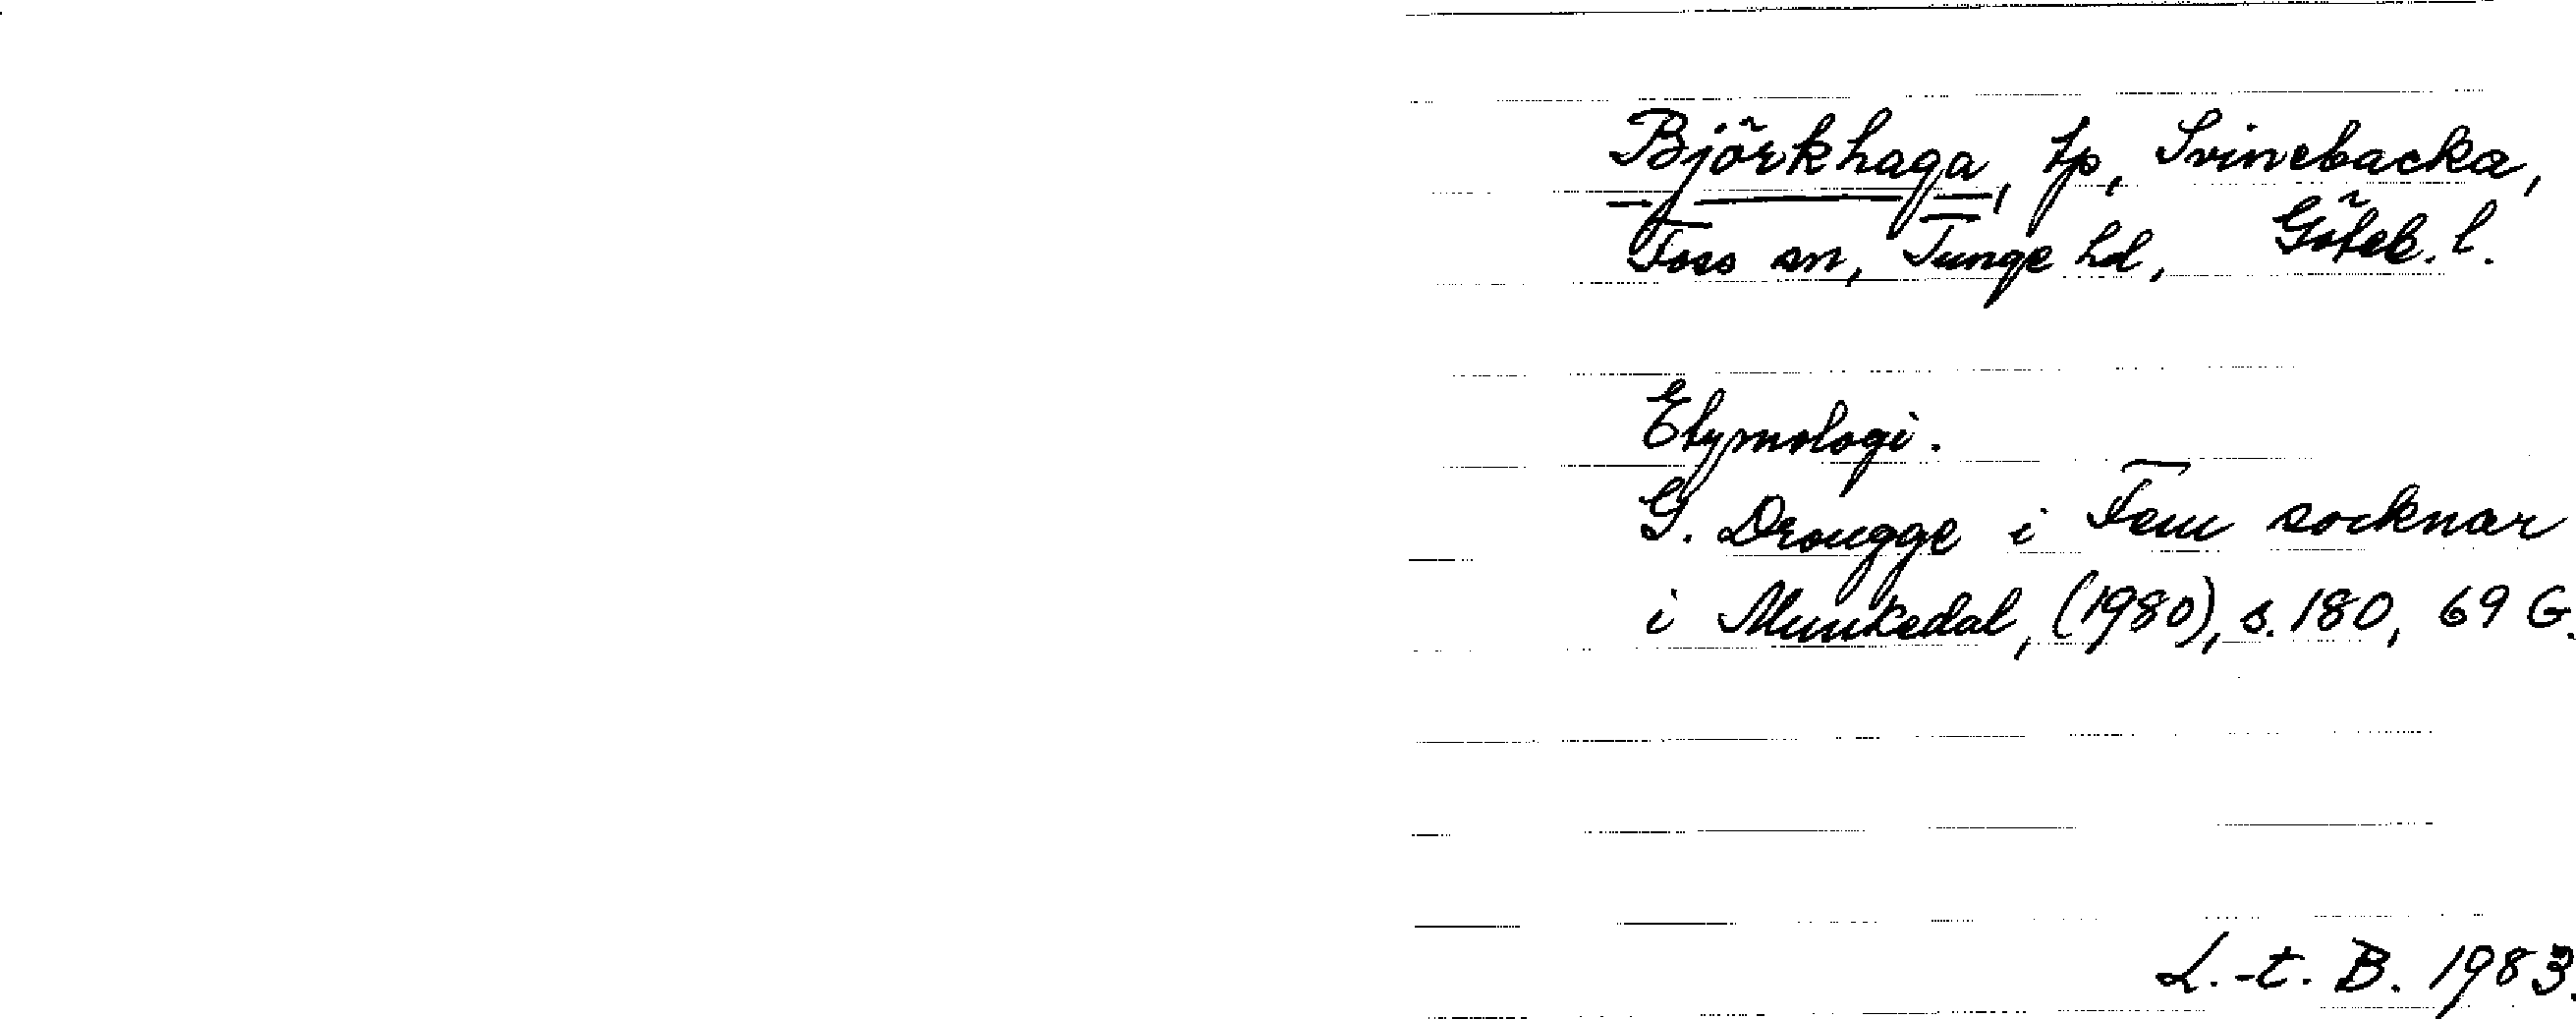 Björkhaga, tp, Svinebacka,
Foss sn, Tunge hd, Göteb. l.
Etymologi.
G. Drougge i Fem socknar
i Munkedal, (1980), s. 180, 69 G.
L.-t. B. 1983.